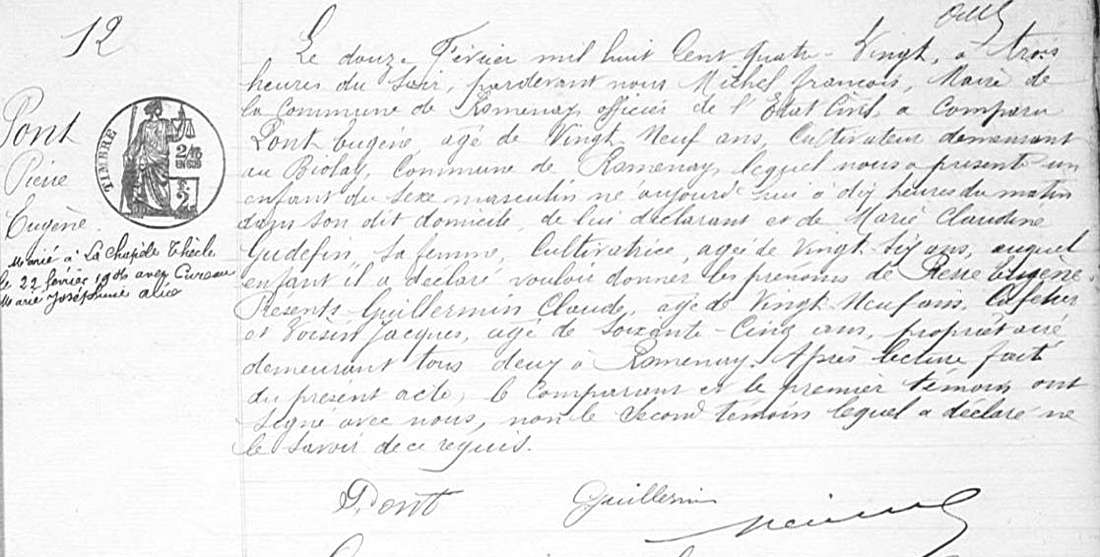 12
Pont
Pierre
Eugène.
Marié à La Chapelle Thècle
le 22 février 1906 avec Cureau
Marie Joséphine Alice
TIMBRE
Le douze Février mil huit Cent quatre-Vingt, à trois
heures du Soir, pardevant nous Michel françois, Maire de
la Commune de Romenay officier de l'Etat Civil, a Comparu
Pont Eugène, agé de Vingt Neuf ans, Cultivateur demeurant
au Biolay, Commune de Romenay, lequel nous a présenté un
enfant du Sexe masculin né aujourd'hui à dix heures du matin
dans son dit domicile, de lui déclarant et de Marie Claudine
Gudefin, Sa femme, Cultivatrice, agée de Vingt Six ans, auquel
enfant il a déclaré vouloir donner les prénoms de Pierre Eugène.
Présents Guillermin Claude, agé de Vingt Neuf ans, Cafetier
et Voisin Jacques, agé de Soixante-Cinq ans, propriétaire
demeurant tous deux à Romenay. Après lecture faite
du présent acte, le Comparant et le premier témoin ont
Signé avec nous, non le Second témoin lequel a déclaré ne
le Savoir de ce requis.
P. Pont Guillermin